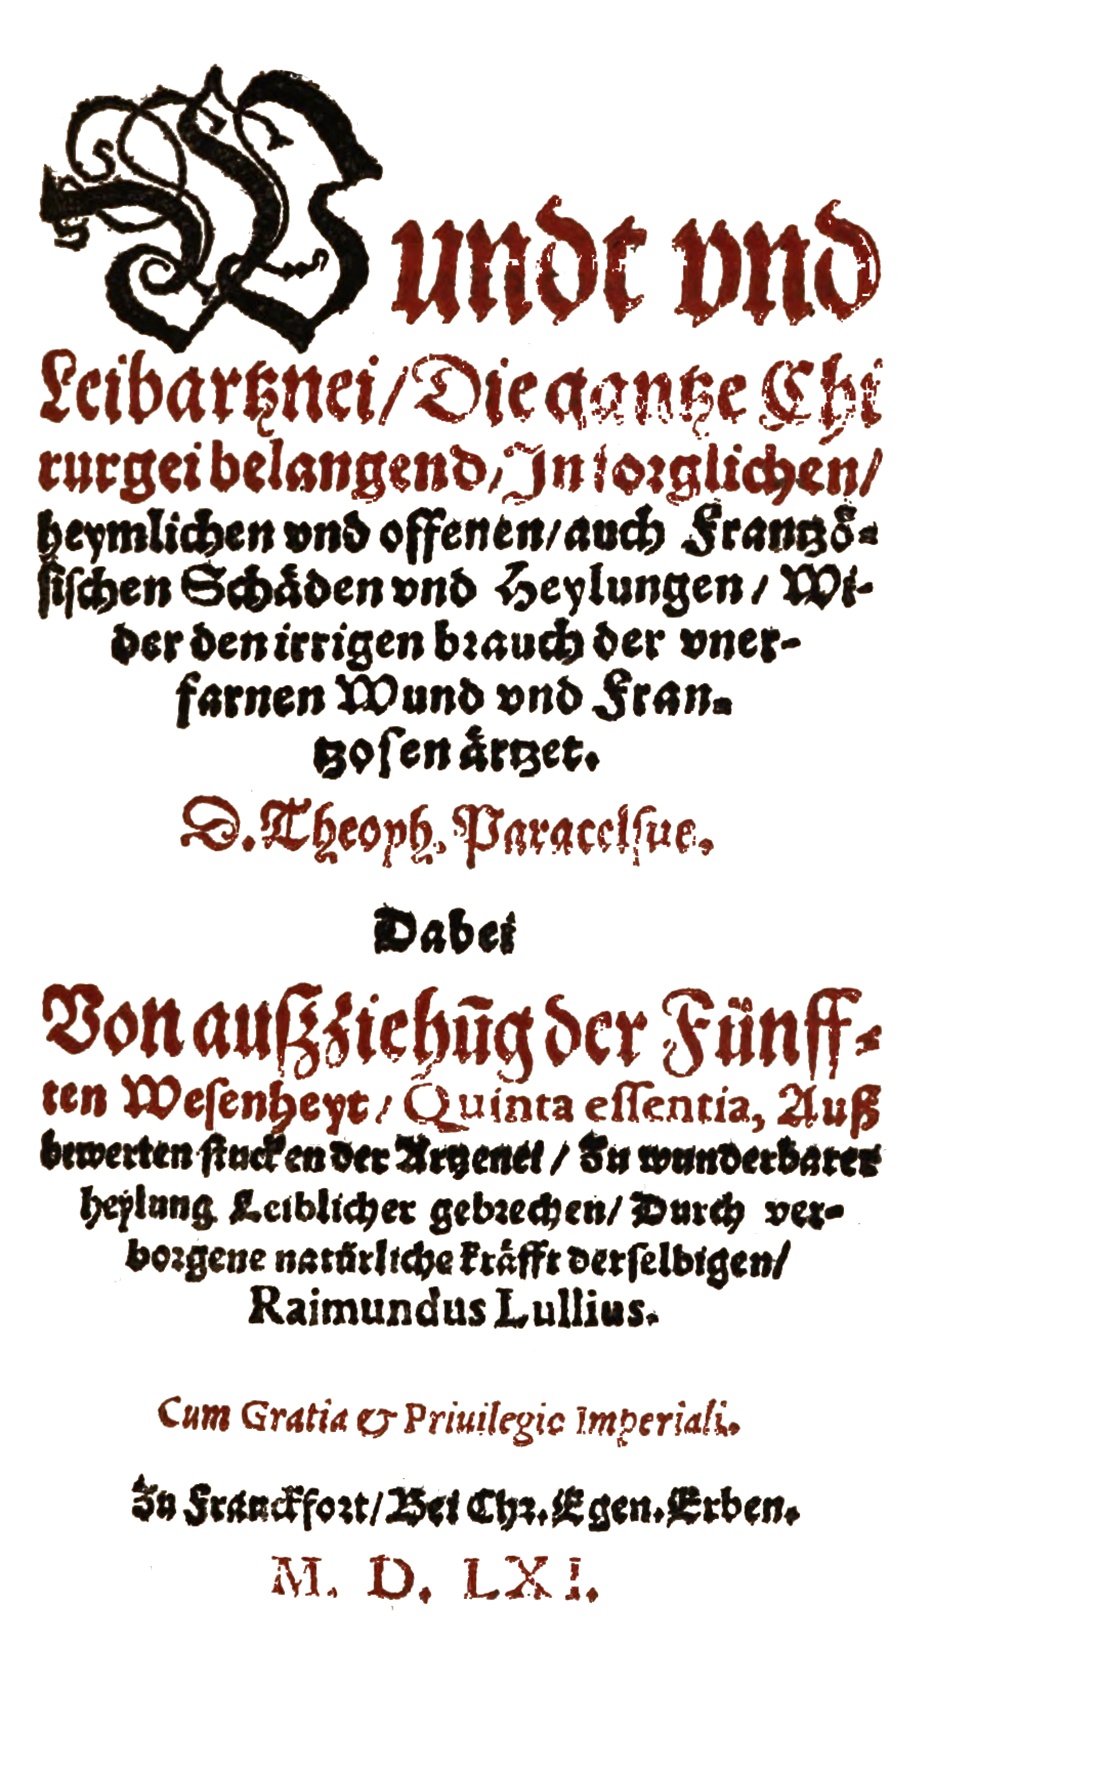 Wundt vnd
Leibartznei/ Die gantze Chi
rurgei belangend/ In sorglichen/
heymlichen vnd offenen/ auch Frantzö-
sischen Schäden vnd Heylungen/ Wi-
der den irrigen brauch der vner-
farnen Wund vnd Fran-
tzosen ärtzet.
D. Theoph. Paracelsus.
Dabei
Von außziehūg der Fünff-
ten Wesenheyt/ Quinta essentia, Auß
bewerten stucken der Artzenei/ Zu wunderbarer
heylung Leiblicher gebrechen/ Durch ver-
borgene natürliche kräfft derselbigen/
Raimundus Lullius.
Cum Gratia & Priuilegio Imperiali.
Zu Franckfort/ Bei Chr. Egen. Erben.
M. D. LXI.